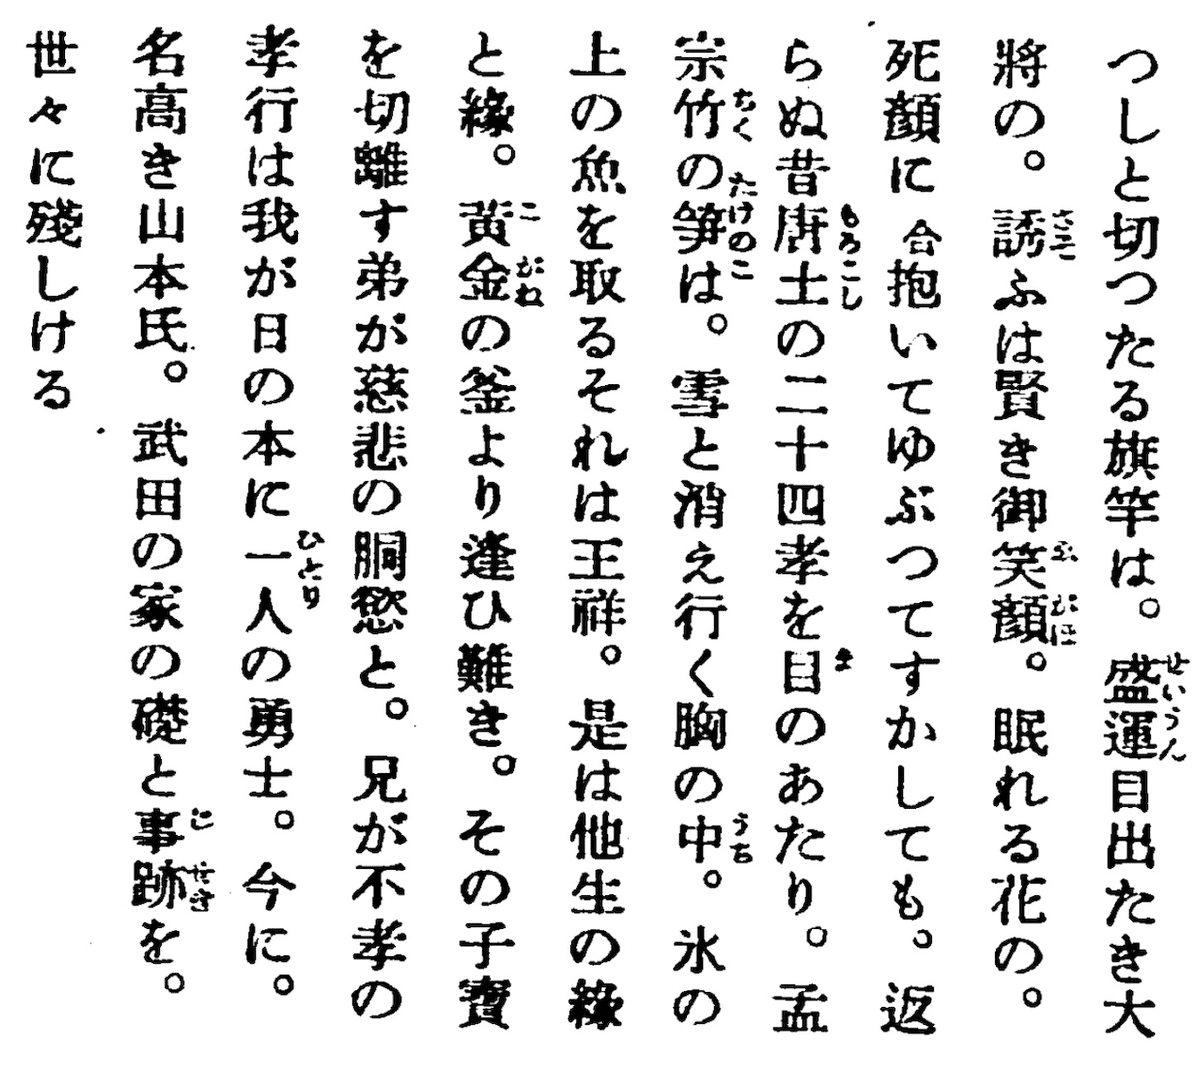 つしと切つたる旗竿は。盛運目出たき大
將の。誘ふは賢き御笑顔。眠れる花の。
死顔に合抱いてゆぶつてすかしても。返
らぬ昔唐土の二十四孝を目のあたり。孟
宗竹の笋は。雪と消え行く胸の中。氷の
上の魚を取るそれは王祥。是は他生の緣
と緣。黄金の釜より逢ひ難き。その子寶
を切離す弟が慈悲の胴慾と。兄が不孝の
孝行は我が日の本に一人の勇士。今に。
名高き山本氏。武田の家の礎と事跡を。
世々に殘しける